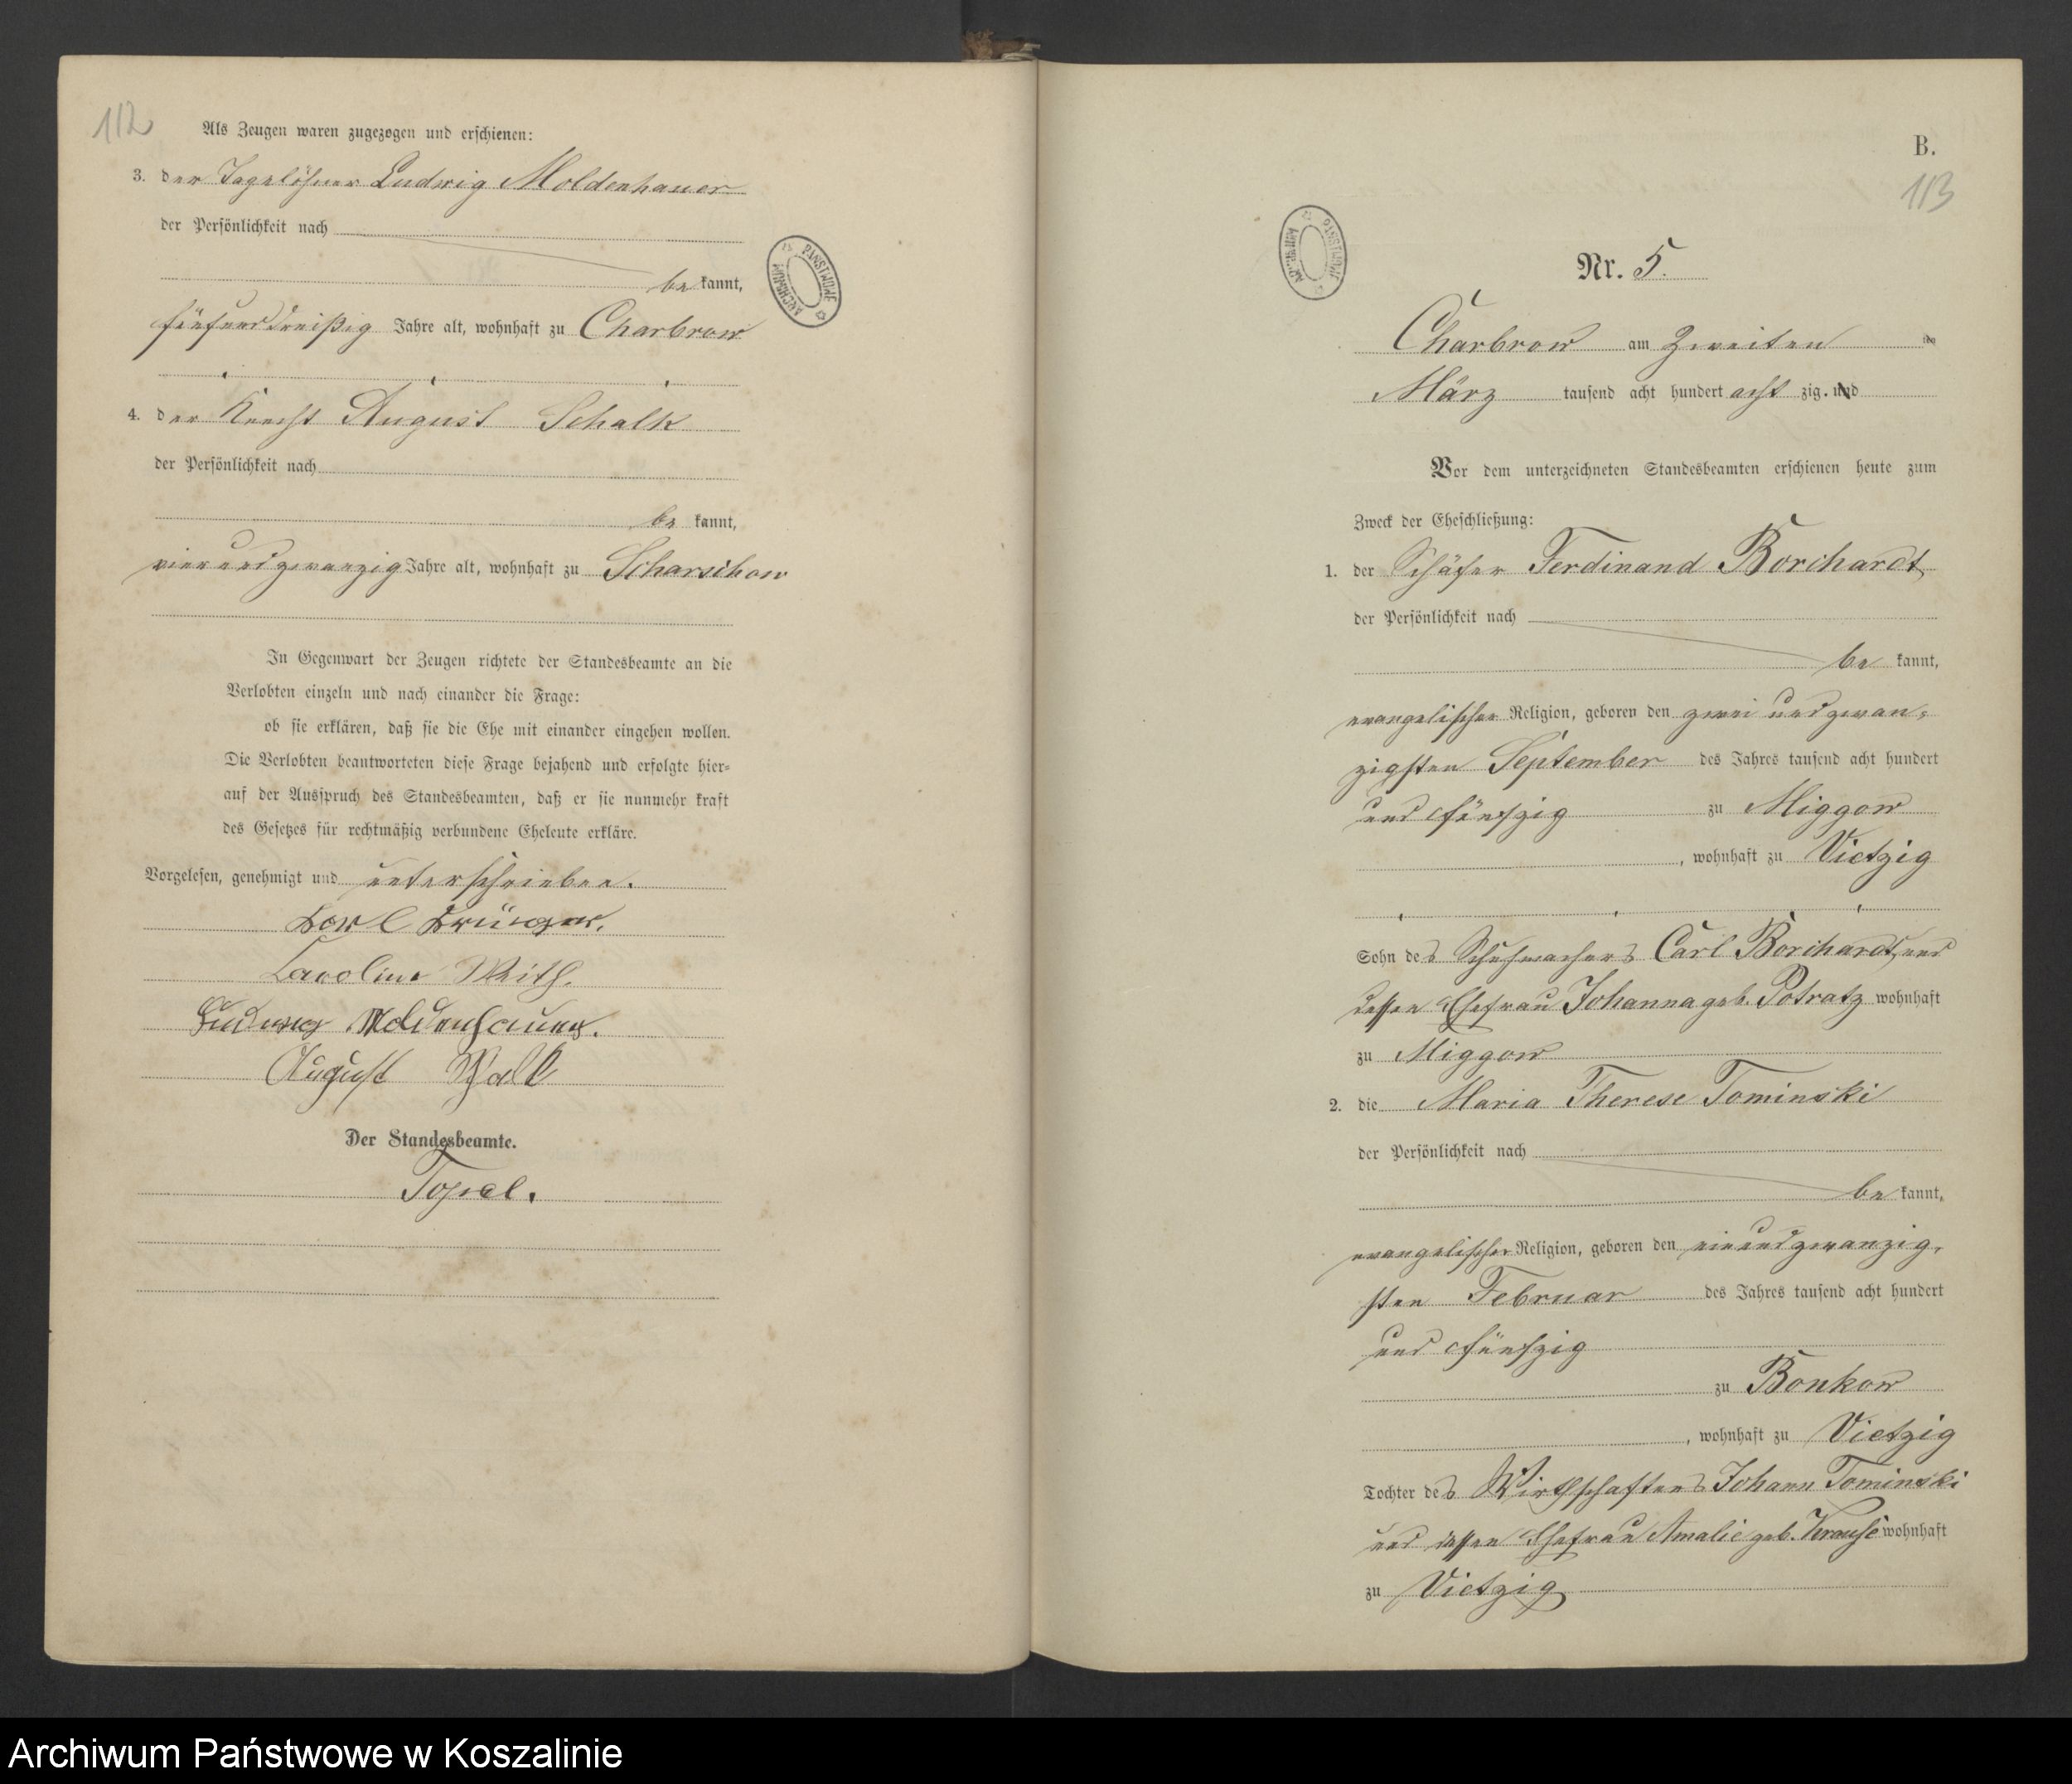 112
Als Zeugen waren zugezogen und erschienen:
3. der Tagelöhner Ludwig Moldenhauer
der Persönlichkeit nach
be kannt,
fünfunddreißig Jahre alt, wohnhaft zu Charbrow
4. der Knecht August Schalk
der Persönlichkeit nach
be kannt,
vierundzwanzig Jahre alt, wohnhaft zu Scharschow
In Gegenwart der Zeugen richtete der Standesbeamte an die
Verlobten einzeln und nach einander die Frage:
ob sie erklären, daß sie die Ehe mit einander eingehen wollen.
Die Verlobten beantworteten diese Frage bejahend und erfolgte hier=
auf der Ausspruch des Standesbeamten, daß er sie nunmehr kraft
des Gesetzes für rechtmäßig verbundene Eheleute erkläre.
Vorgelesen, genehmigt und unterschrieben.
Karl Krüger.
Caroline
Ludwig Moldenhauer.
August Schalk
Der Standesbeamte.
Topel.
ARCHIWUM PAŃSTWOWE
B.
113
ARCHIWUM PAŃSTWOWE
Nr. 5.
Charbrow am Zweiten ten
März tausend acht hundert acht zig. und
Vor dem unterzeichneten Standesbeamten erschienen heute zum
Zweck der Eheschließung:
1. der Schäfer Ferdinand Borchardt
der Persönlichkeit nach
be kannt,
evangelischer Religion, geboren den zwei und zwan=
zigsten September des Jahres tausend acht hundert
und fünfzig zu Miggow
, wohnhaft zu Vietzig
Sohn des Schuhmachers Carl Borchardt und
dessen Ehefrau Johanna geb. Potratz wohnhaft
zu Miggow
2. die Maria Therese Tominski
der Persönlichkeit nach
be kannt,
evangelischer Religion, geboren den einundzwanzig=
sten Februar des Jahres tausend acht hundert
und fünfzig
zu Bonkow
, wohnhaft zu Vietzig
Tochter des Wirthschafters Johann Tominski
und dessen Ehefrau Amalie geb. Krause wohnhaft
zu Vietzig
Archiwum Państwowe w Koszalinie